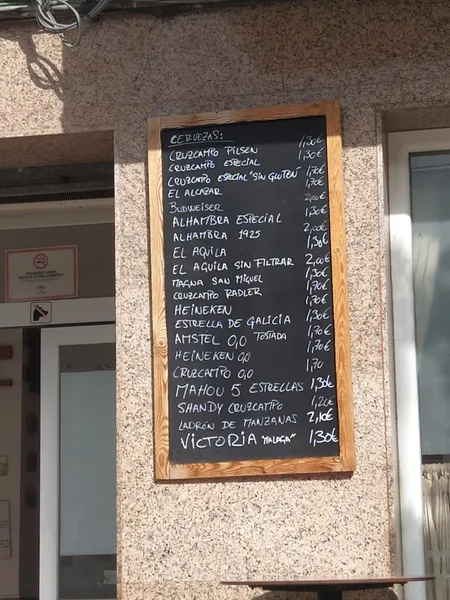 CERVEZAS:
CRUZCAMPO PILSEN 1,30€
CRUZCAMPO ESPECIAL 1,30€
CRUZCAMPO ESPECIAL "SIN GLUTEN" 1,70€
EL ALCAZAR 1,70€
BUDWEISER 2,00€
ALHAMBRA ESPECIAL 1,30€
ALHAMBRA 1925 2,00€
EL AQUILA 1,30€
EL AGUILA SIN FILTRAR 2,00€
MAGNA SAN MIGUEL 1,30€
CRUZCAMPO RADLER 1,70€
HEINEKEN 1,70€
ESTRELLA DE GALICIA 1,30€
AMSTEL 0,0 TOSTADA 1,70€
HEINEKEN 0,0 1,70€
CRUZCAMPO 0,0 1,70
MAHOU 5 ESTRELLAS 1,30€
SHANDY CRUZCAMPO 1,20€
LADRÓN DE MANZANAS 2,10€
VICTORIA "MALAGA" 1,30€